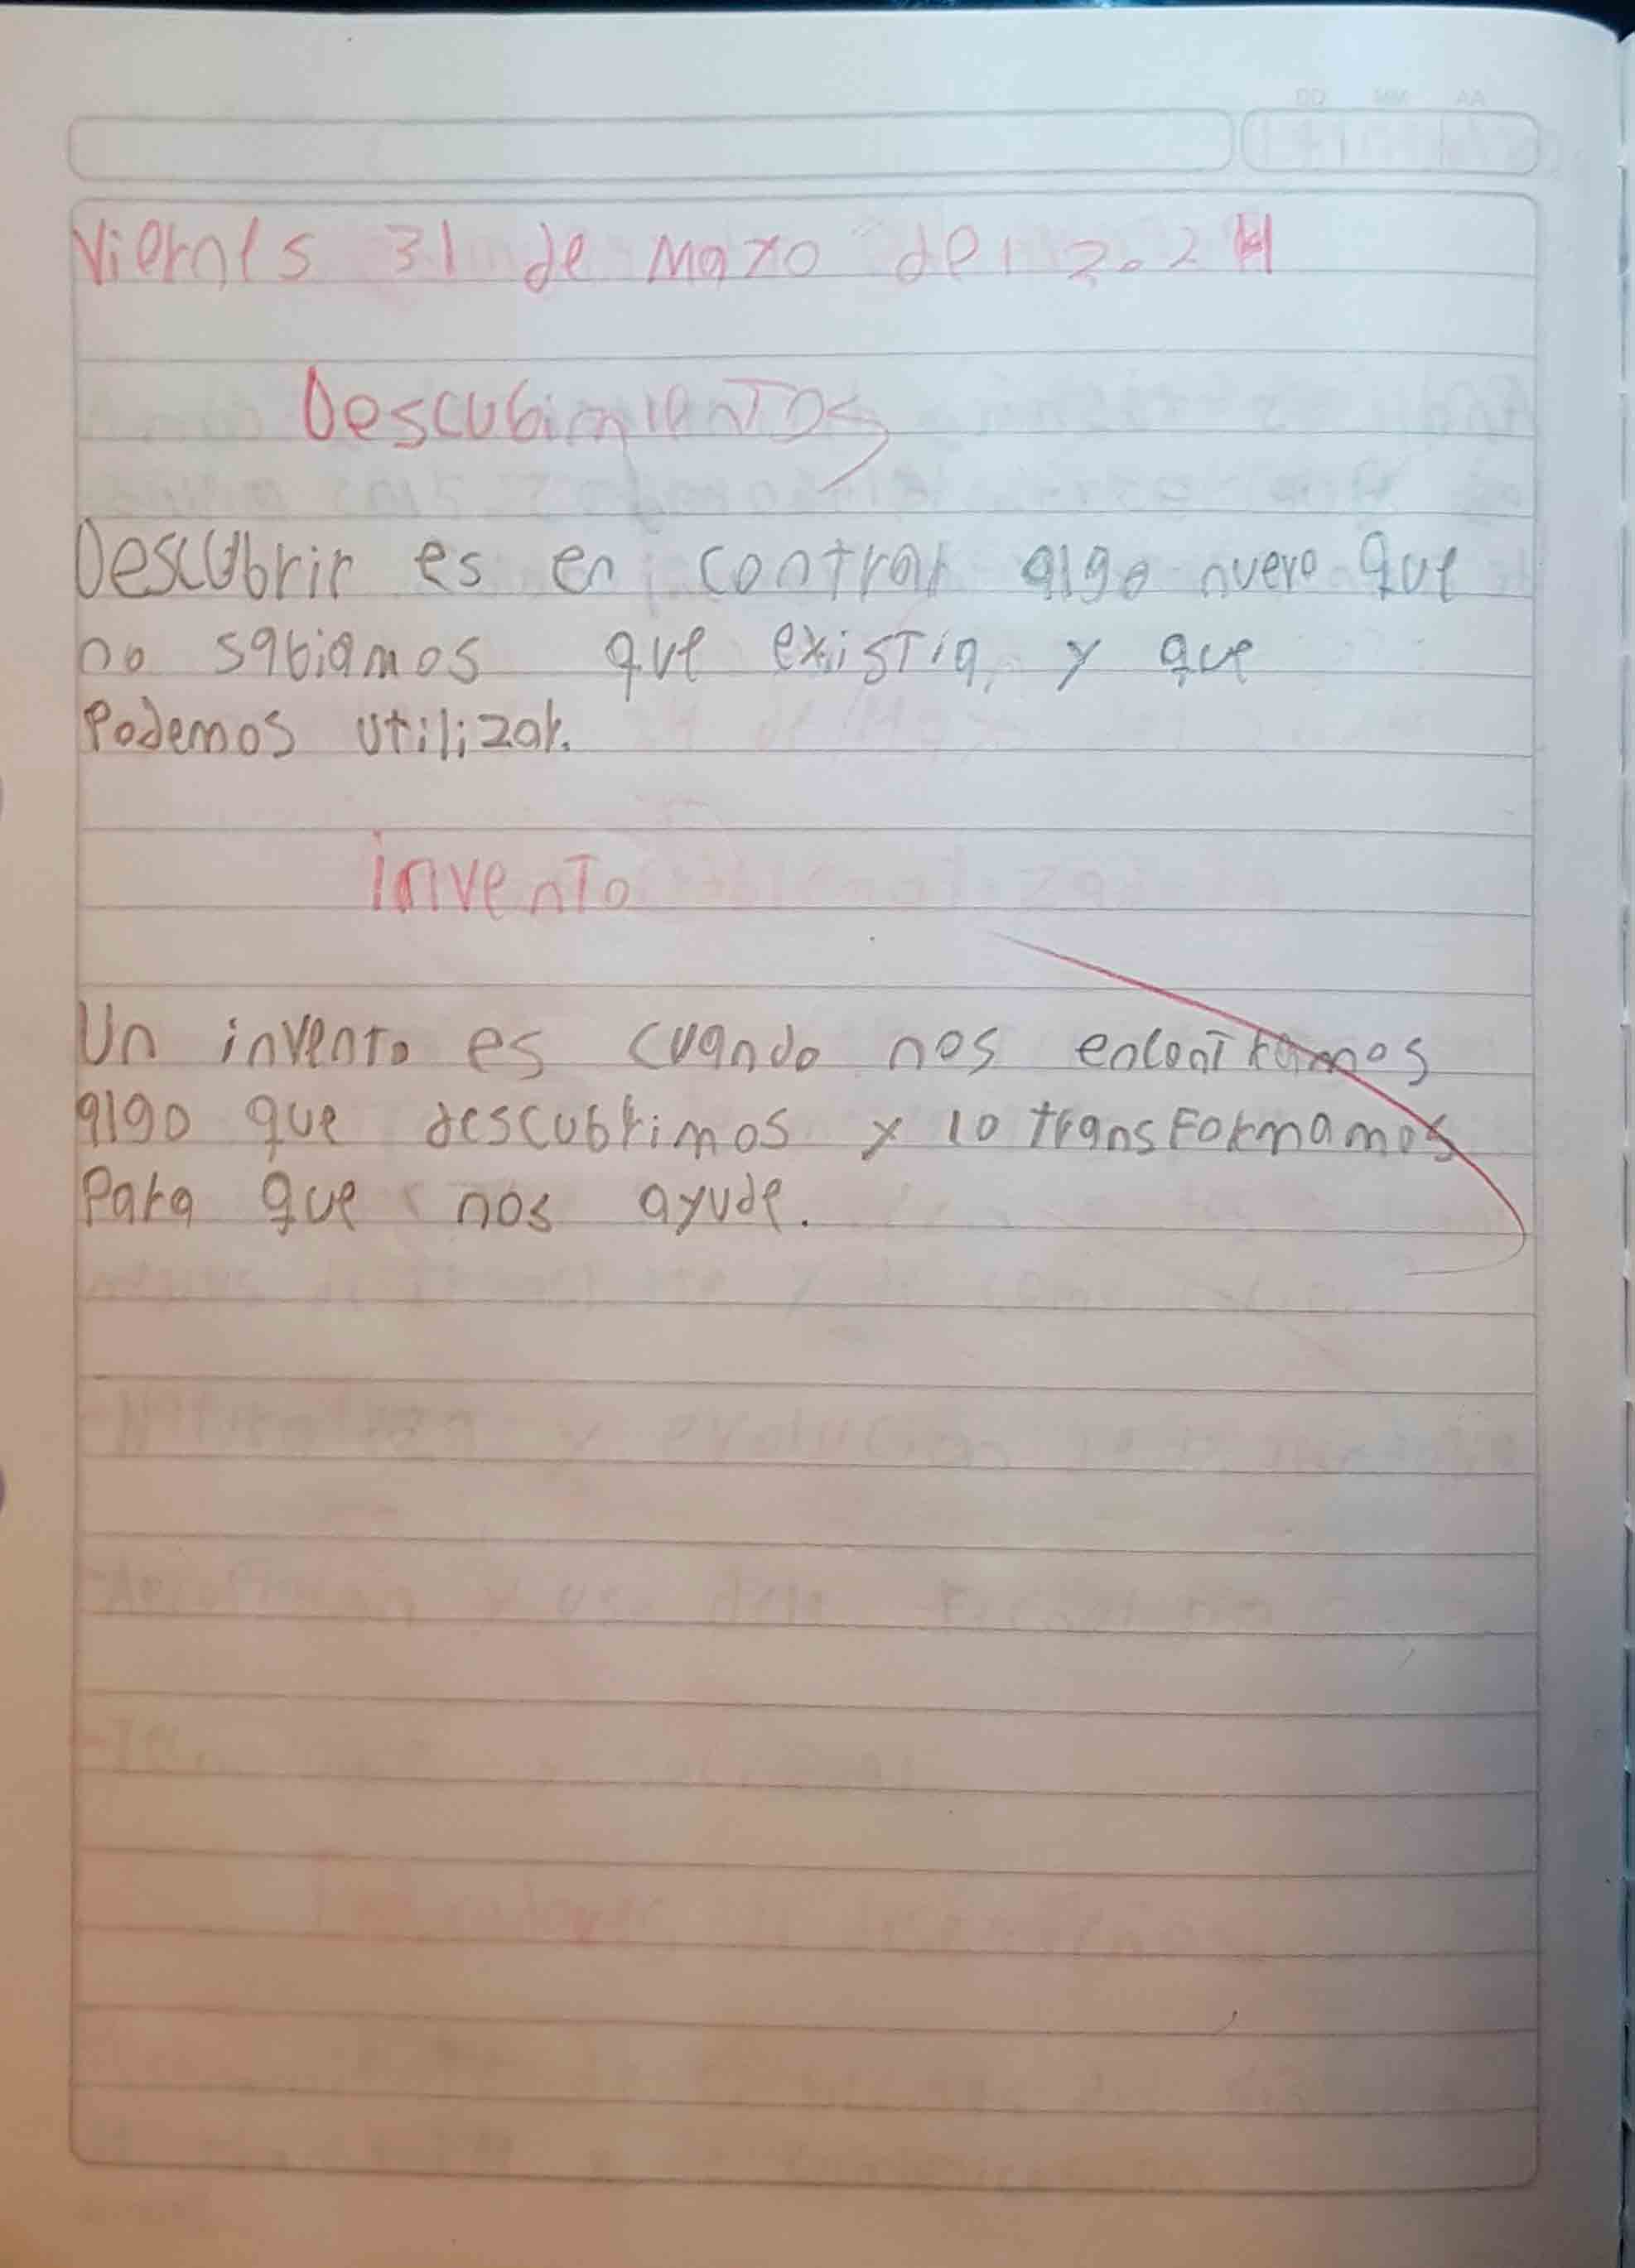 DD MM AA
Viernes 31 de Mayo del 2.024
Descubimientos
Descubrir es en contrar algo nuevo que
no sabiamos que existia, y que
Podemos utilizar.
invento
Un invento es cuando nos encontramos
algo que descubrimos y lo transFormamos
Para que nos ayude.